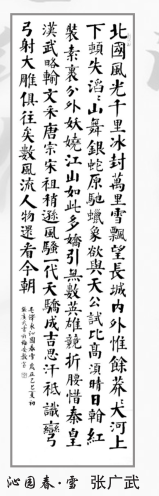 北國風光千里冰封萬里雪飄望長城内外惟餘莽〻大河上
下頓失滔〻山舞銀蛇原馳蠟象欲與天公試比高須晴日翰紅
裝素裹分外妖嬈江山如此多嬌引無數英雄競折腰惜秦皇
漢武略輸文采唐宗宋祖稍遜風騷一代天驕成吉思汗祇識彎
弓射大雕俱往矣數風流人物還看今朝
毛澤東沁園春雪
沁园春·雪 张广武